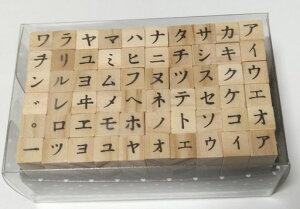 アイウエオア
カキクケコイ
サシスセソウ
タチツテトエ
ナニヌネノオ
ハヒフヘホヤ
マミムメモユ
ヤユヨヰヱヨ
ラリルレロツ
ワヲン゛゜ー